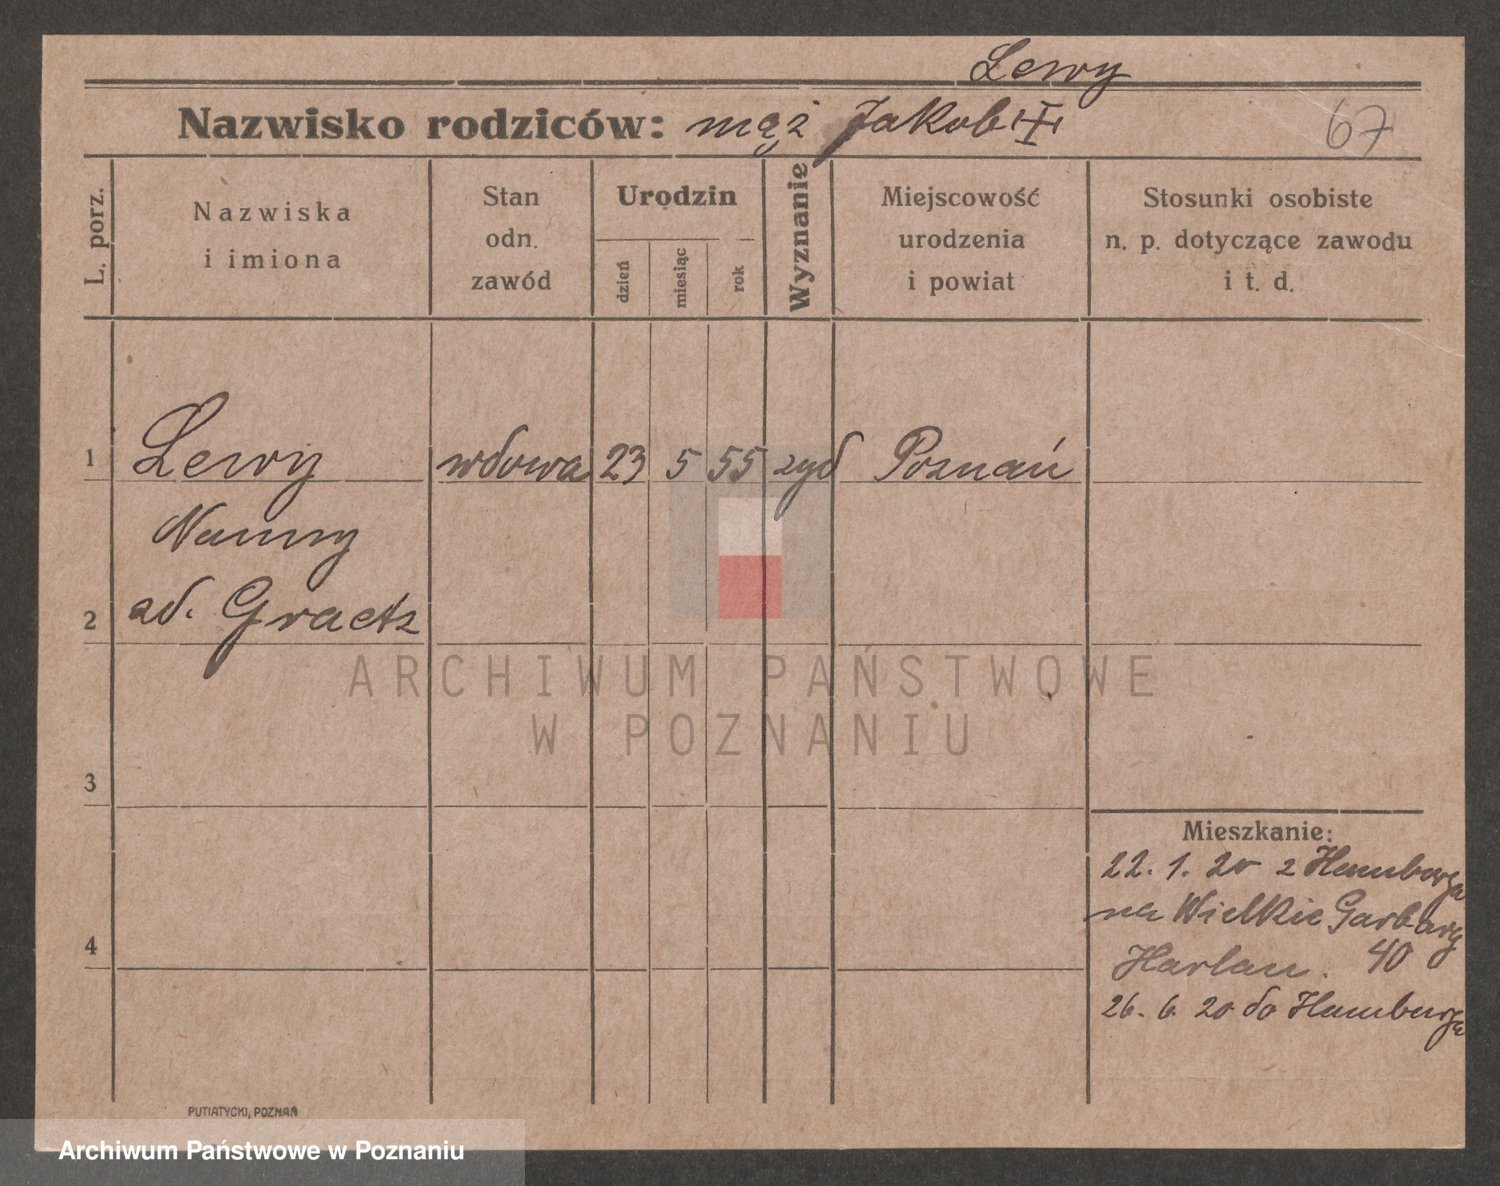 Lewy
Nazwisko rodziców: mąż Jakob
67
L. porz.
Nazwiska
i imiona
Stan
odn.
zawód
Urodzin
dzień
miesiąc
rok
Wyznanie
Miejscowość
urodzenia
i powiat
Stosunki osobiste
n. p. dotyczące zawodu
i t. d.
1 Lewy wdowa 23 5 55 żyd Poznań
Nanny
2 zd. Graetz
ARCHIWUM PAŃSTWOWE
W POZNANIU
3
Mieszkanie:
22. 1. 20 z Hamburga
na Wielkie Garbary
Harlan. 40
4
26. 6. 20 do Hamburga
PUTIATYCKI, POZNAŃ
Archiwum Państwowe w Poznaniu